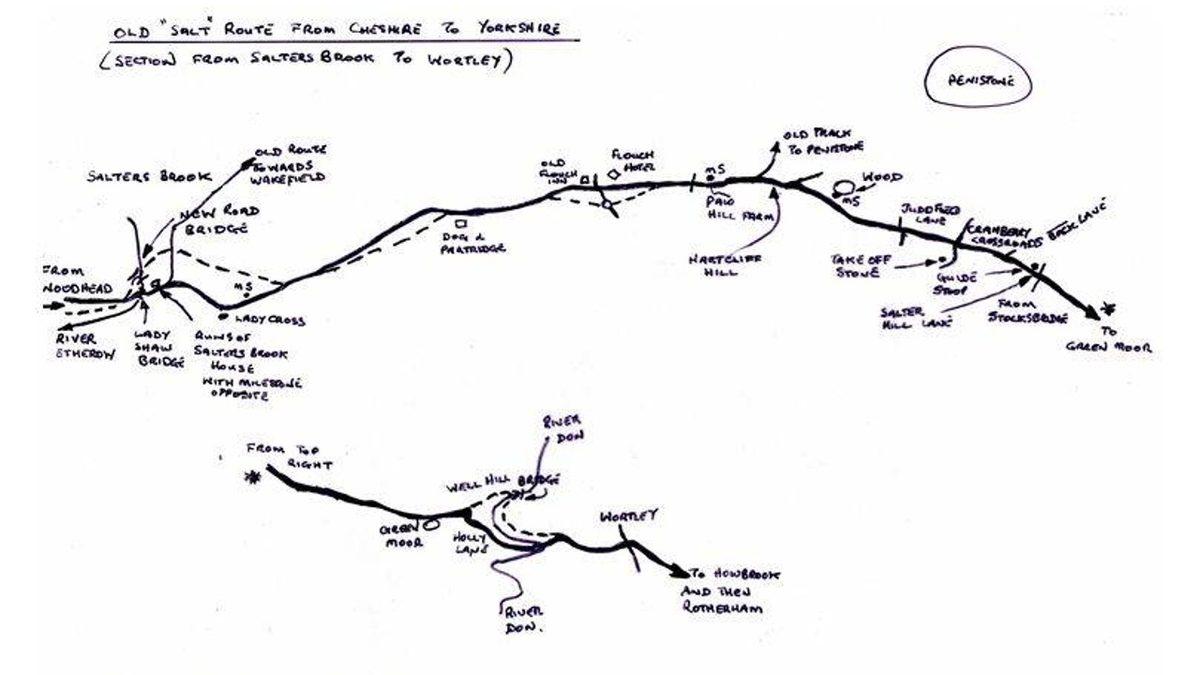 OLD "SALT" ROUTE FROM CHESHIRE TO YORKSHIRE
(SECTION FROM SALTERS BROOK TO WORTLEY)
PENISTONE
OLD ROUTE
TOWARDS
WAKEFIELD
SALTERS BROOK
NEW ROAD
BRIDGE
FROM
WOODHEAD
RIVER
ETHEROW
LADY
SHAW
BRIDGE
RUINS OF
SALTERS BROOK
HOUSE
WITH MILESTONE
OPPOSITE
MS
LADY CROSS
DOG &
PARTRIDGE
OLD
FLOUCH
INN
FLOUCH
HOTEL
MS
PAW
HILL FARM
OLD TRACK
TO PENISTONE
HARTCLIFF
HILL
WOOD
MS
JUDD FIELD
LANE
CRANBERRY
CROSSROADS
BACK LANE
TAKE OFF
STONE
GUIDE
STOOP
SALTER
HILL LANE
FROM
STOCKSBRIDGE
TO
GREEN MOOR
FROM TOP
RIGHT
GREEN
MOOR
HOLLY
LANE
WELL HILL BRIDGE
RIVER
DON
RIVER
DON.
WORTLEY
TO HOWBROOK
AND THEN
ROTHERHAM